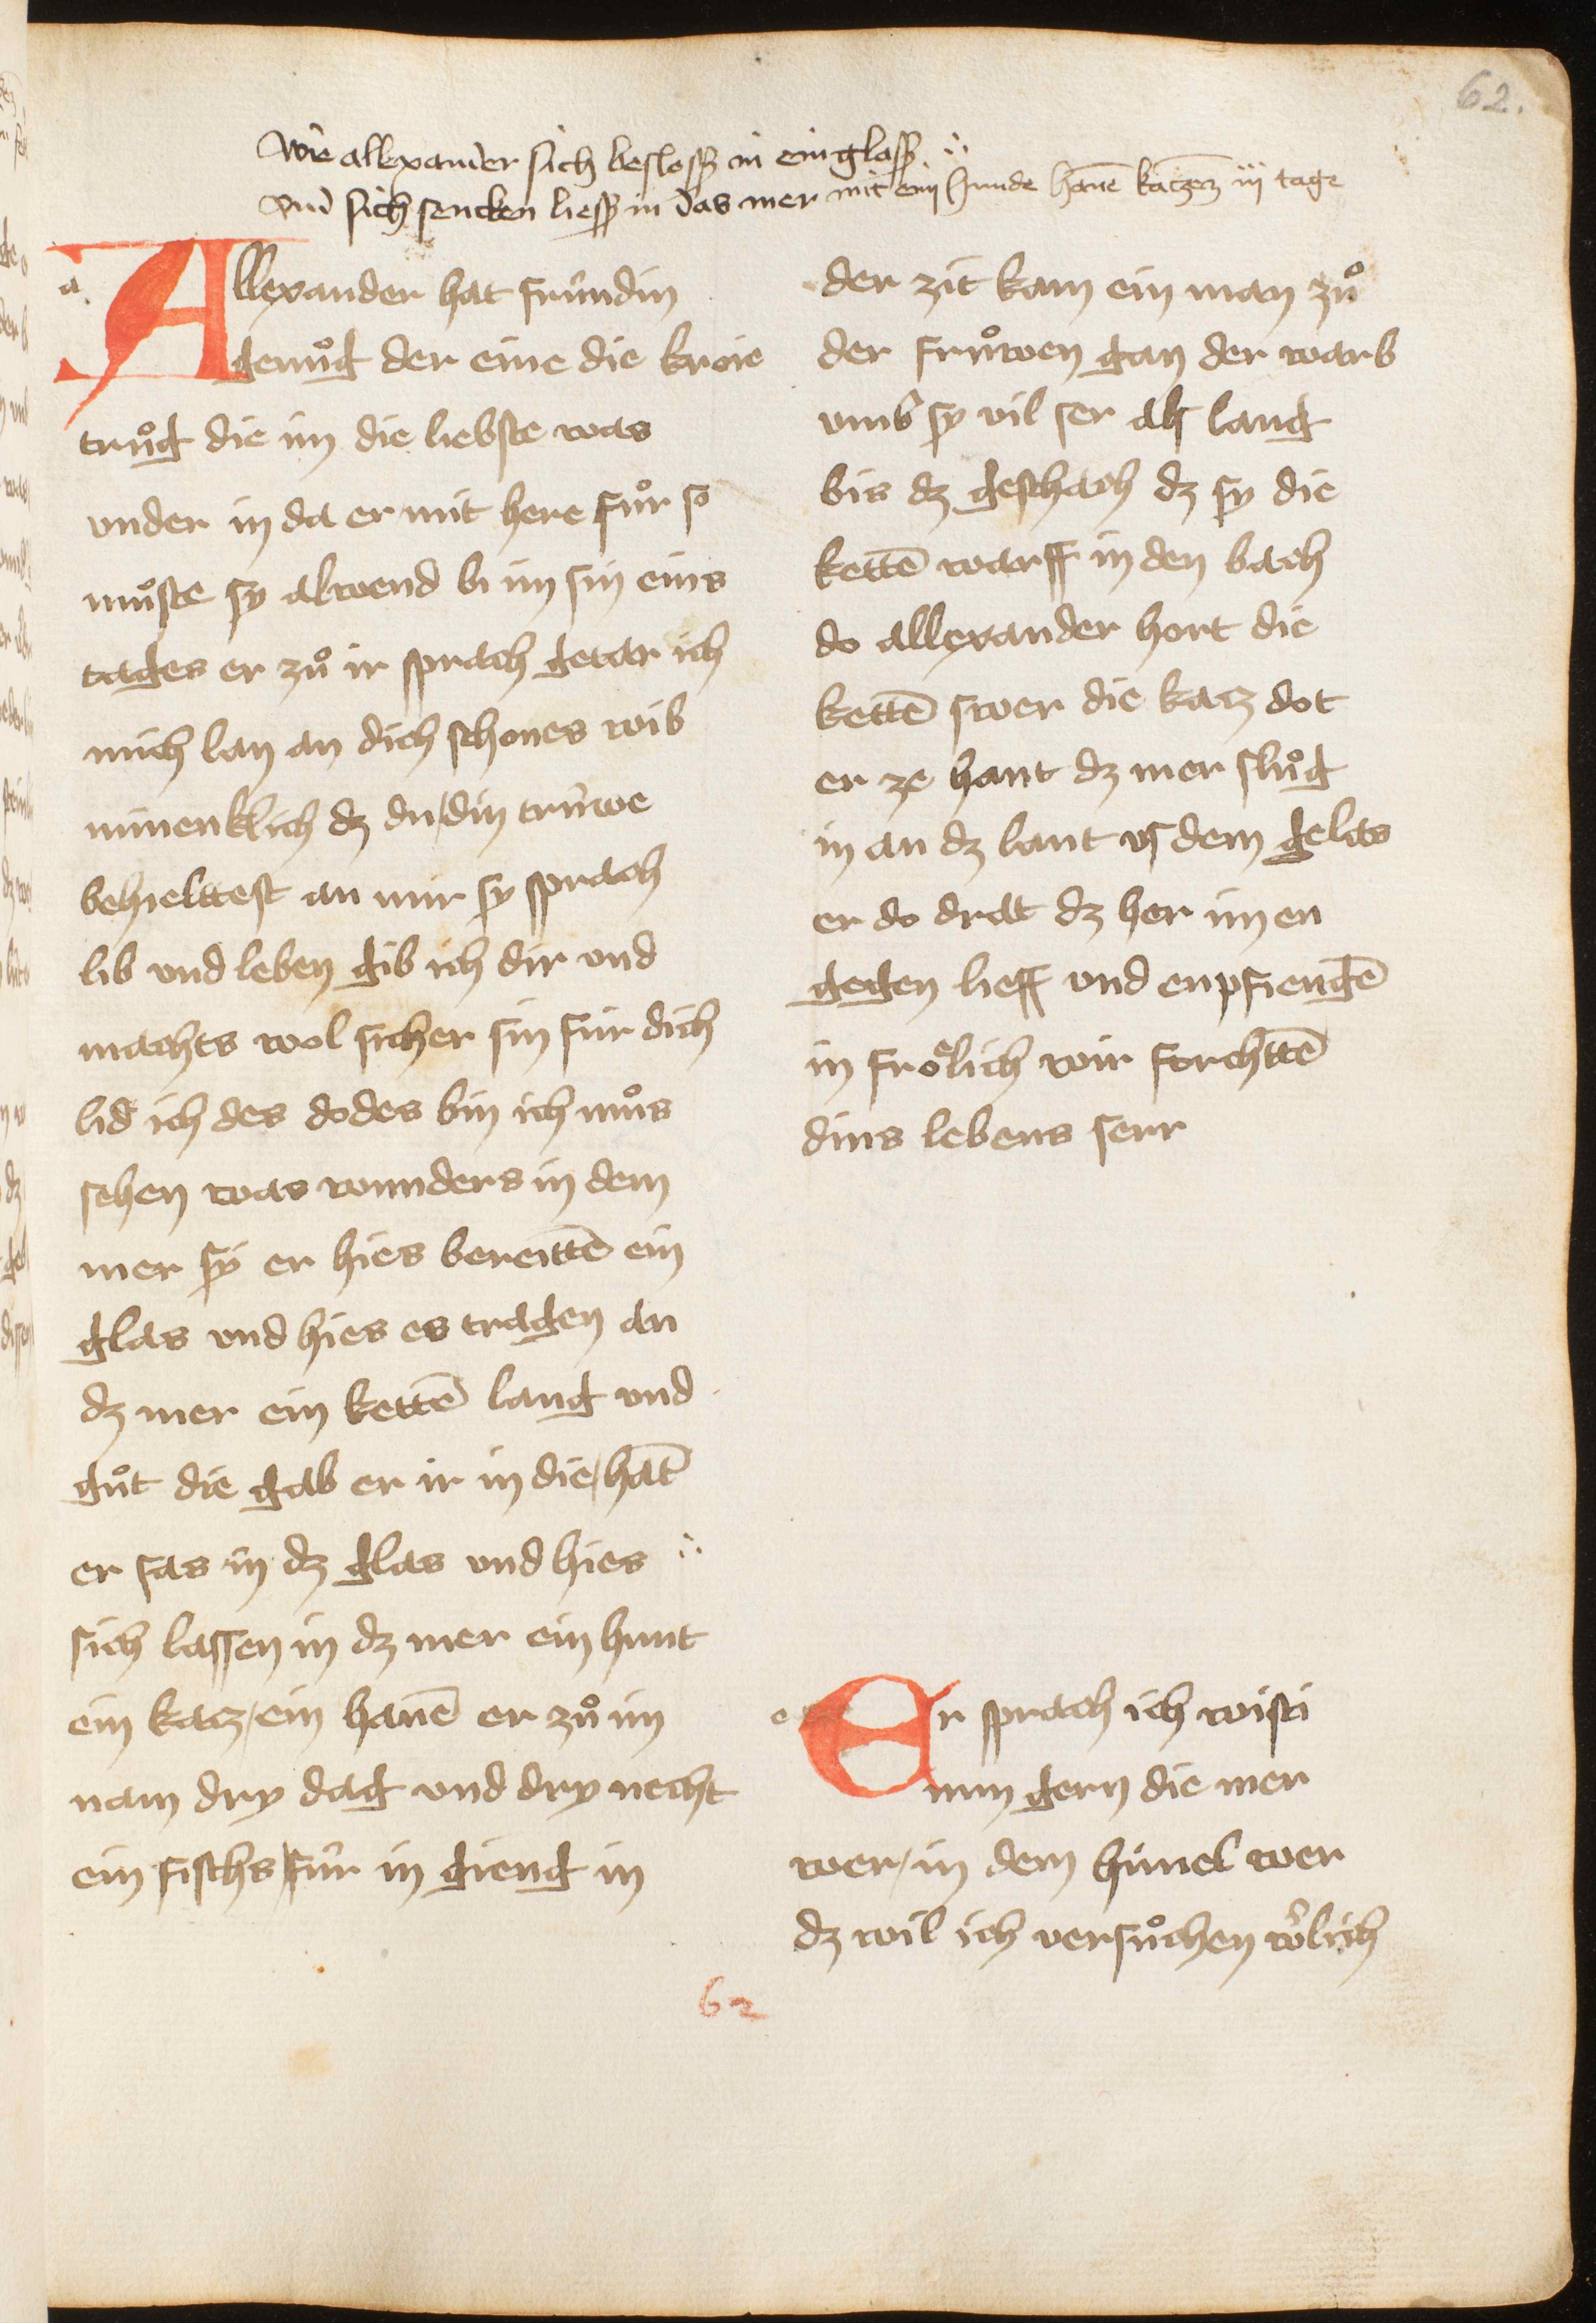 62.
Wie allexander sich besloss in ein glass
Vnd sich sencken liess in das mer mit eim hunde hanē katzen iij tage
a.
Allexander hat fründin
genuͦg der eine die kroie
truͦg die im die liebste was
vnder in da er mit here fuͦr so
muͦste sy alwend bi im sin eins
tages er zuͦ ir sprach getar ich
mich lan an dich schones wib
minenklich dz du din trüwe
behielttest an mir sy sprach
lib vnd leben gib ich dir vnd
machts wol sicher sin für dich
lid ich des dodes bin ich muͦs
sehen was wunders in dem
mer sy er hies bereittē ein
glas vnd hies es tragen an
dz mer ein kettē lang vnd
guͦt die gab er ir in die hāt
er sas in dz glas vnd hies
sich lassen in dz mer ein hunt
ein kacz ein hanē er zuͦ im
nam dry dag vnd dry necht
ein fischs für in gieng in
der zit kam ein man zuͦ
der fruͦwen gan der warb
vmb sy vil ser als lang
bis dz geschach dz sy die
kettē warff in den bach
do allexander hort die
kettē swer die kacz dot
er ze hant dz mer sluͦg
in an dz lant vs dem gelas
er do drat dz her im en
gegen lieff vnd enpfiengē
in froͤlich wir forchttē
dins lebens serr
e
Er sprach ich wisti
nun gern die mer
wer in dem himel wer
dz wil ich versuͦchen
62